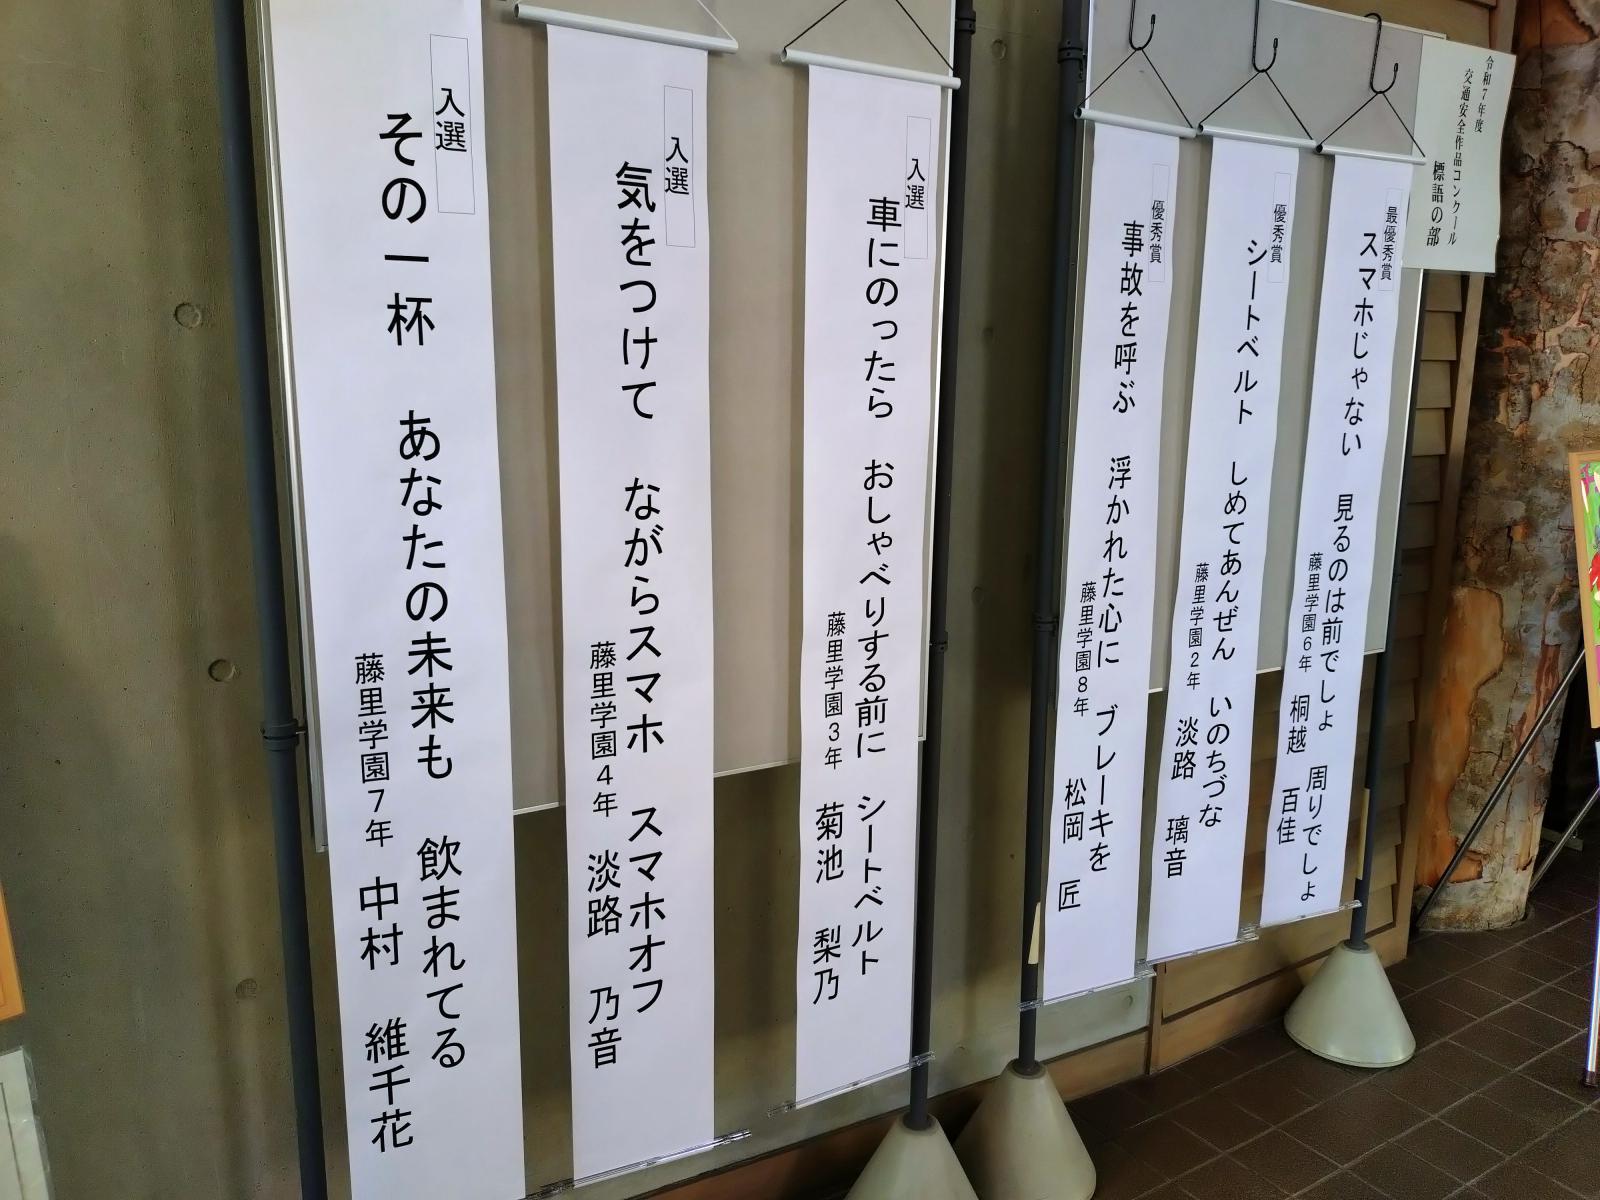 令和7年度
交通安全作品コンクール
標語の部
最優秀賞
スマホじゃない　見るのは前でしょ　周りでしょ
藤里学園6年　桐越　百佳
優秀賞
シートベルト　しめてあんぜん　いのちづな
藤里学園2年　淡路　璃音
優秀賞
事故を呼ぶ　浮かれた心に　ブレーキを
藤里学園8年　松岡　匠
入選
車にのったら　おしゃべりする前に　シートベルト
藤里学園3年　菊池　梨乃
入選
気をつけて　ながらスマホ　スマホオフ
藤里学園4年　淡路　乃音
入選
その一杯　あなたの未来も　飲まれてる
藤里学園7年　中村　維千花